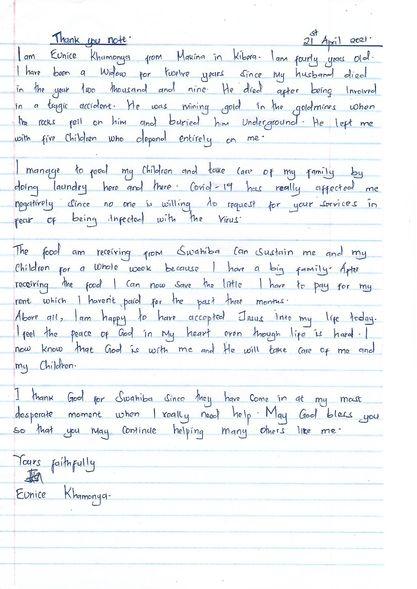 Thank you note.
21st April 2021.
I am Eunice Khamonya from Makina in Kibera. I am fourty years old.
I have been a Widow for twelve years since my husband died
in the year two thousand and nine. He died after being Involved
in a tragic accident. He was mining gold in the goldmines when
the rocks fell on him and buried him Underground. He left me
with five Children who depend entirely on me.
I manage to feed my Children and take care of my family by
doing laundry here and there. Covid-19 has really affected me
negatively since no one is willing to request for your services in
fear of being Infected with the Virus.
The food am receiving from Swahiba Can Sustain me and my
Children for a whole week because I have a big family. After
receiving the food I can now save the little I have to pay for my
rent which I haven't paid for the past three months.
Above all, I am happy to have accepted Jesus into my life today.
I feel the peace of God in My heart even though life is hard. I
now know that God is with me and He will take care of me and
my Children.
I thank God for Swahiba since they have come in at my most
desperate moment when I really need help. May God bless you
so that you may Continue helping many others like me.
Yours faithfully
Eunice Khamonya.